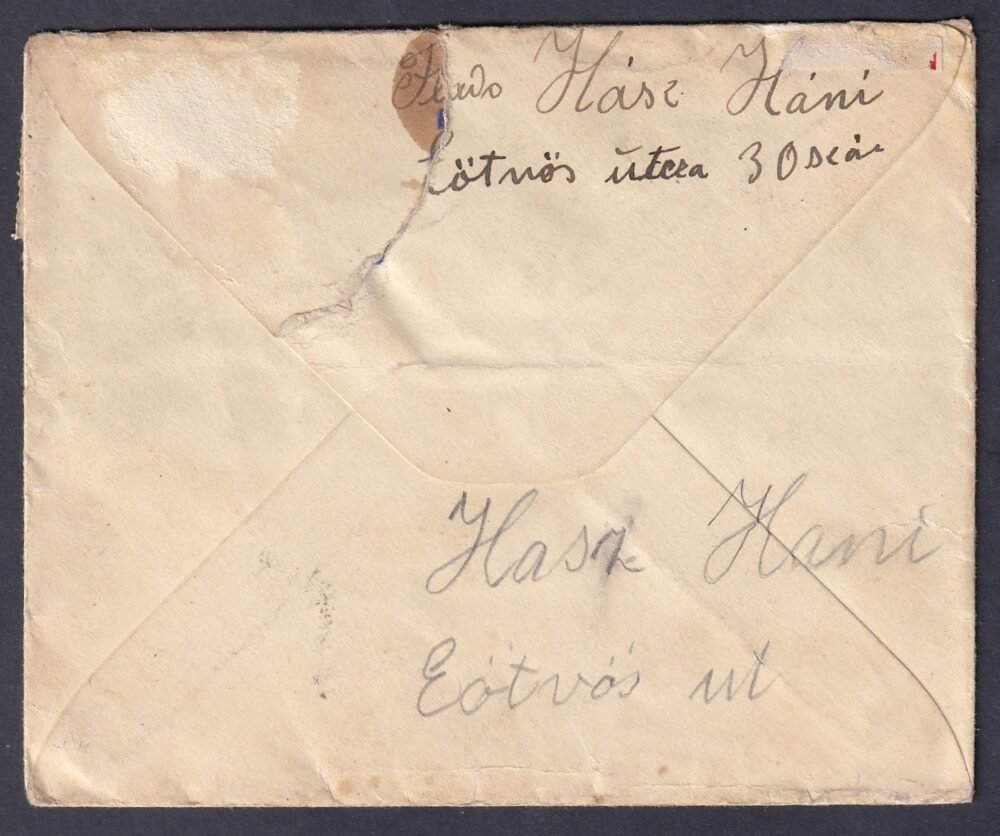 Feladó Hász Háni
Eötvös utcza 30 szám
Hasz Hani
Eötvös ut